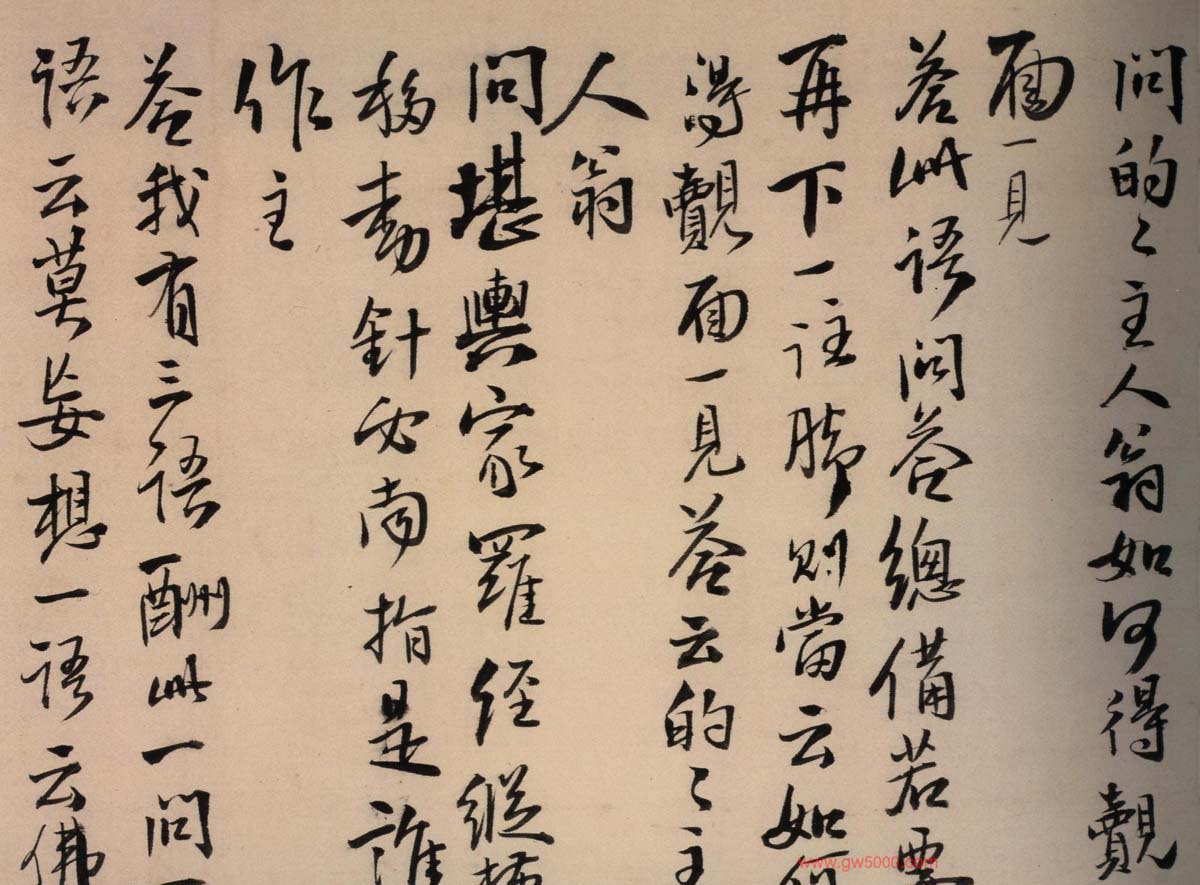 问的〻主人翁如何得觌
面一見
荅此语问荅總備若要
再下一註脚则當云如何
得觌面一見荅云的〻主
人翁
问堪輿家羅经縱横
移動針必南指是誰
作主
荅我有三语酬此一问一
语云莫妄想一语云佛
www.gw5000.com